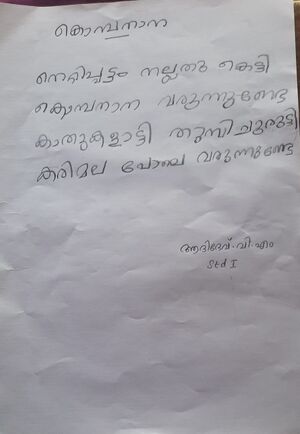 കൊമ്പനാന
നെറ്റിപ്പട്ടം നല്ലതു കെട്ടി
കൊമ്പനാന വരുന്നുണ്ടേ
കാതുകളാട്ടി തുമ്പിചുരുട്ടി
കരിമല പോലെ വരുന്നുണ്ടേ
ആദിദേവ്.വി.എം
Std I